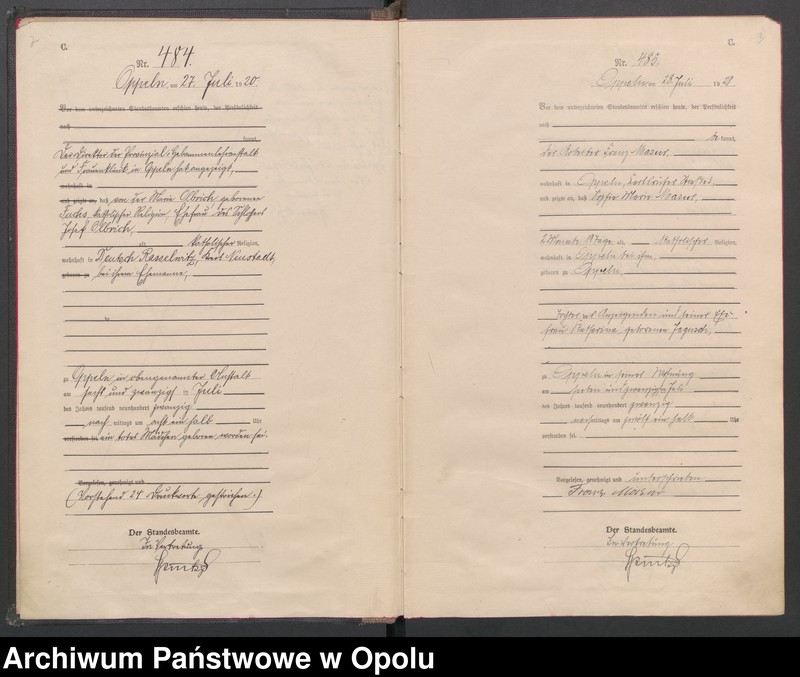 C.
Nr. 484.
Oppeln am 27. Juli 1920.
Vor dem unterzeichneten Standesbeamten erschien heute, der Persönlichkeit
nach
kannt,
Der Direktor der Provinzial-Hebammenlehranstalt
und Frauenklinik in Oppeln hat angezeigt,
wohnhaft in
und zeigte an, daß von der Marie Olbrich geborenen
Fuchs, katholischer Religion, Ehefrau des Schlossers
Josef Olbrich,
alt, katholischer Religion,
wohnhaft in Deutsch Rasselwitz, Kreis Neustadt,
geboren zu bei ihrem Ehemanne,
zu Oppeln in obengenannter Anstalt
am sechs und zwanzigsten Juli
des Jahres tausend neunhundert zwanzig
nach mittags um acht ein halb Uhr
verstorben sei ein totes Mädchen geboren worden sei.
Vorgelesen, genehmigt und
(Vorstehend 24 Druckworte gestrichen.)
Der Standesbeamte.
In Vertretung
C.
Nr. 485.
Oppeln am 28. Juli 1920.
Vor dem unterzeichneten Standesbeamten erschien heute, der Persönlichkeit
nach
be kannt,
der Arbeiter Franz Mazur,
wohnhaft in Oppeln,
und zeigte an, daß Marie Mazur,
2 Monate Tage alt, katholischer Religion,
wohnhaft in Oppeln bei ihm,
geboren zu Oppeln,
Tochter des Anzeigenden und seiner Ehe-
frau Katharina geborenen
zu Oppeln in seiner Wohnung
am sieben und zwanzigsten Juli
des Jahres tausend neunhundert zwanzig
vormittags um zwölf ein halb Uhr
verstorben sei.
Vorgelesen, genehmigt und unterschrieben
Franz Mazur
Der Standesbeamte.
In Vertretung.
Archiwum Państwowe w Opolu